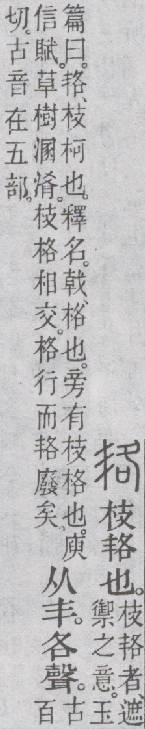 枝也。
枝者、遮
禦之意。玉
篇曰。枝柯也。釋名。戟、格也。旁有枝格也。庾
信賦。草樹溷淆。枝格相交。格行而廢矣、
从丯。各聲。
古
百
切。古音在五部。